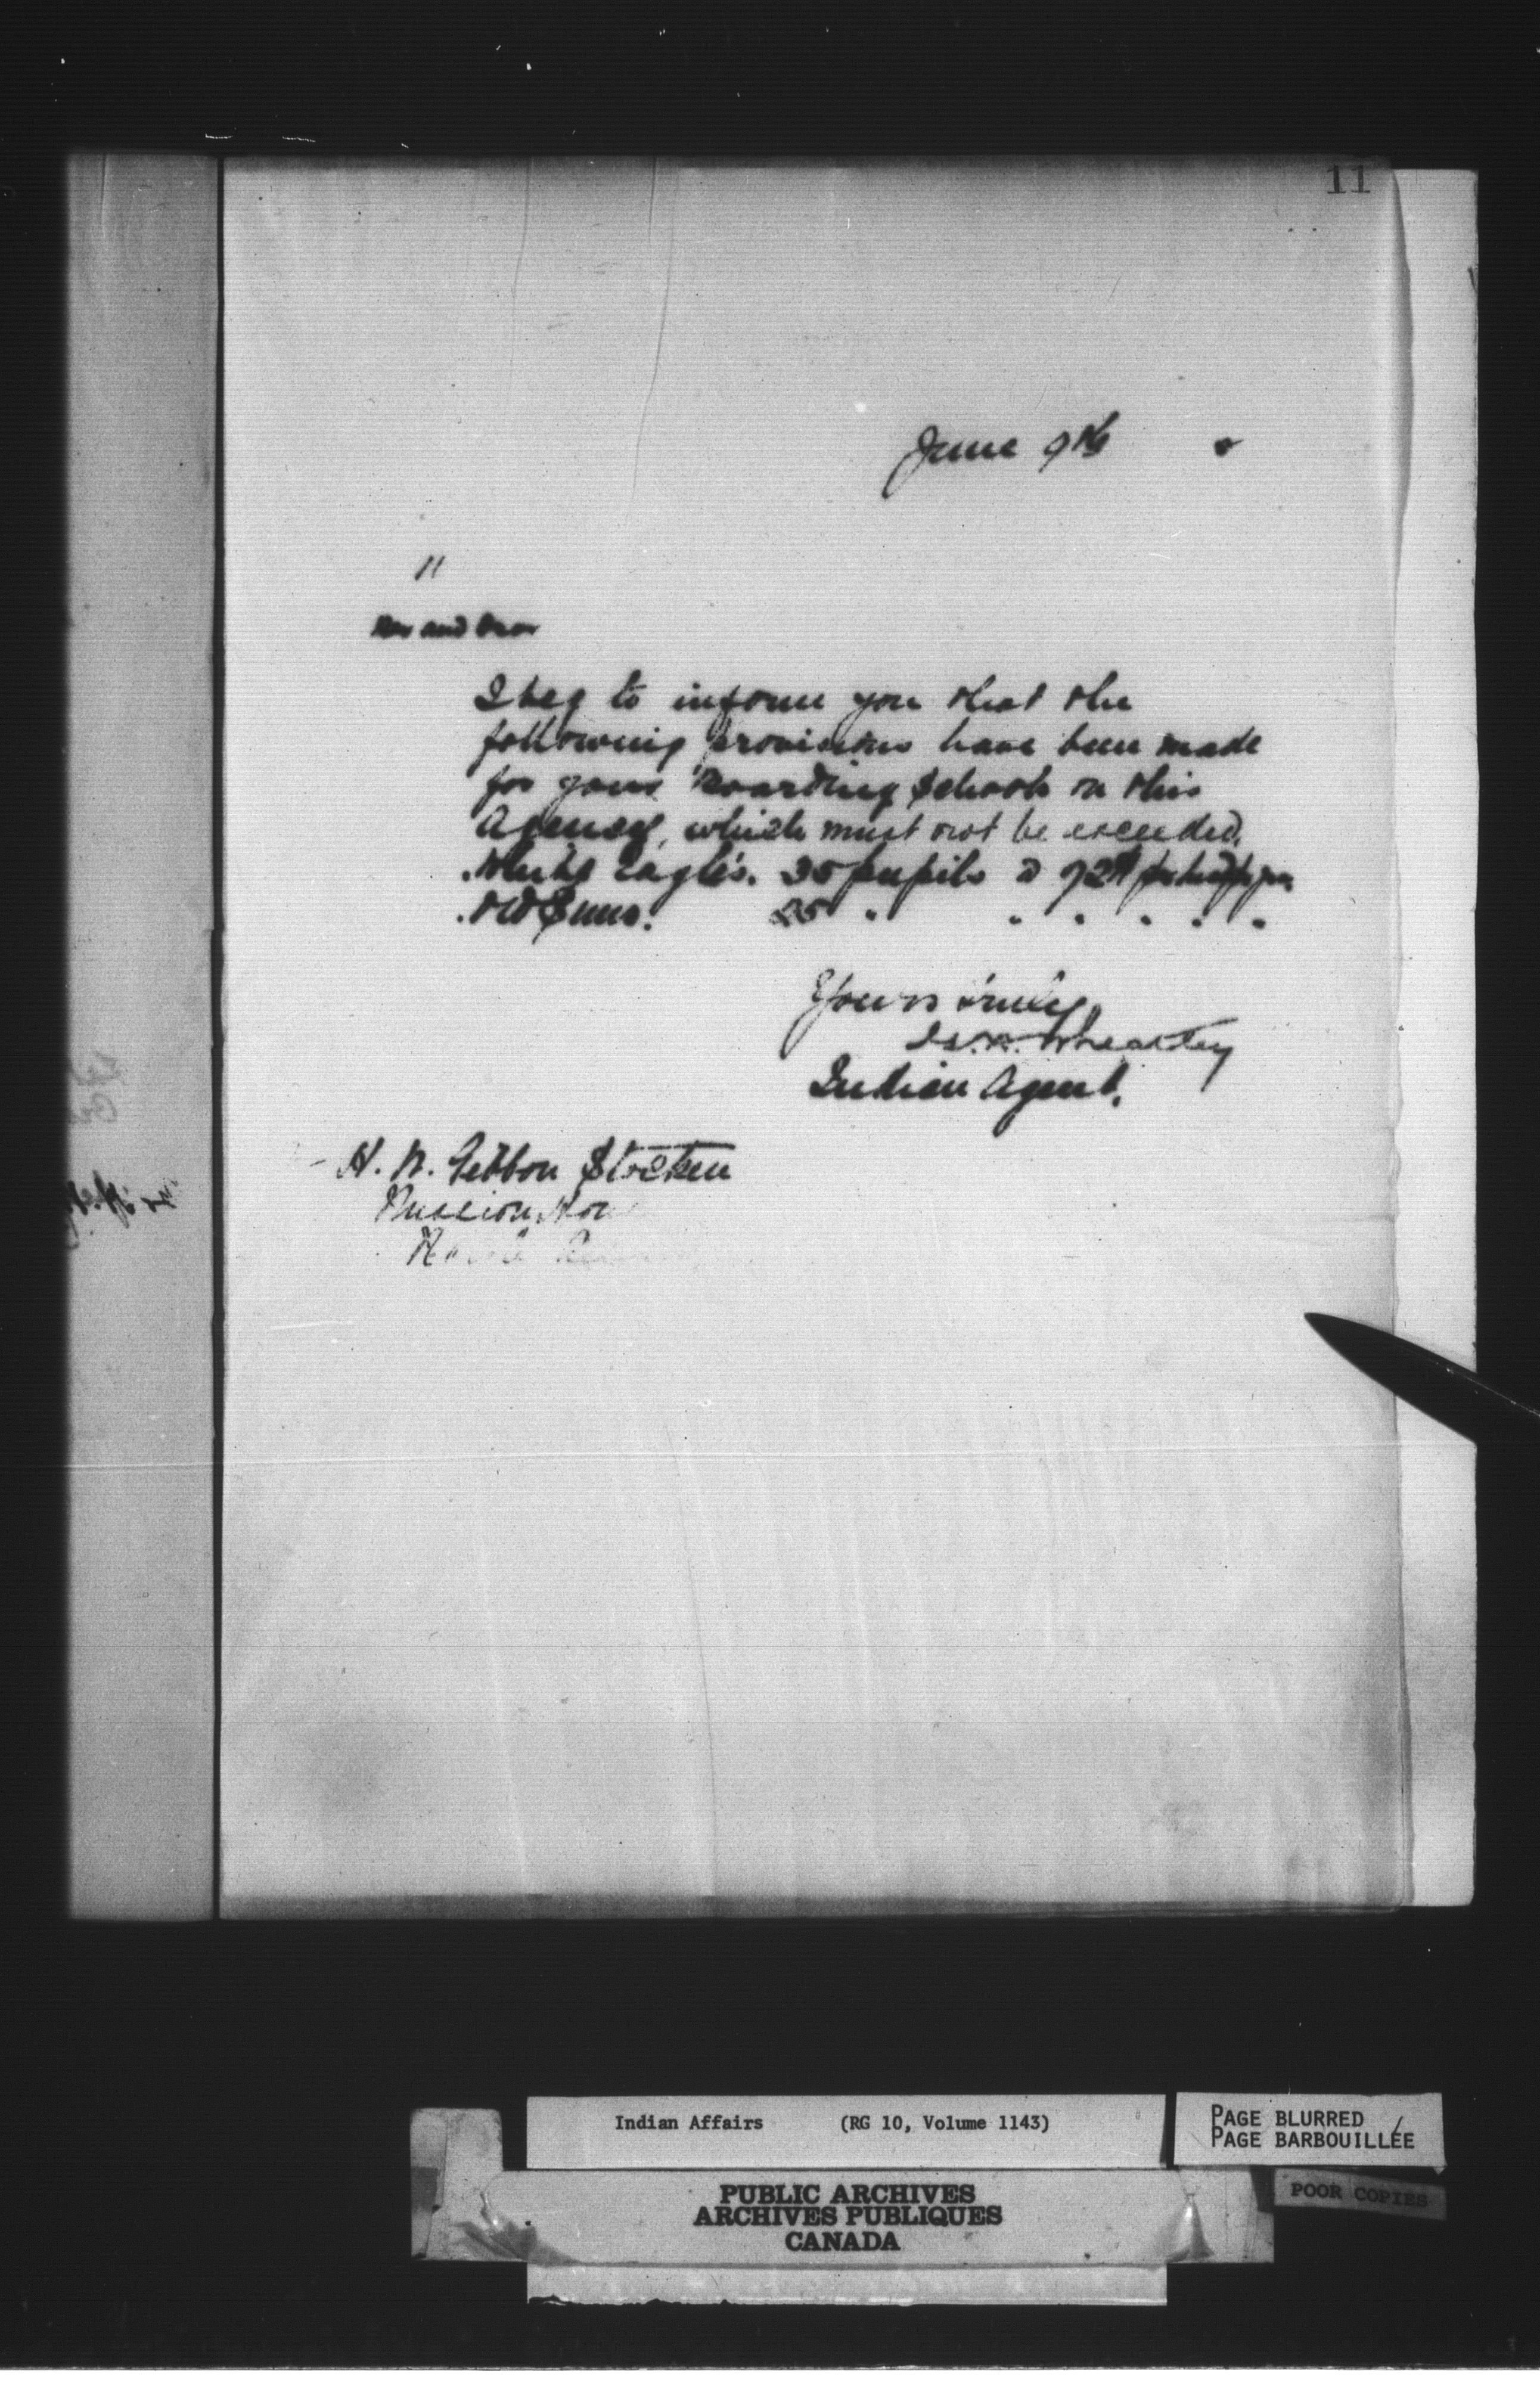 11
June 9th 8
11
Rev and Dear
I beg to inform you that the
following provisions have been made
for your Boarding Schools on this
Agency, which must not be exceeded.
White Eagle's. 35 pupils @ 72 per head per
Old Suns. 25 " " " " " "
Yours truly
Wheatley
Indian Agent.
H. W. Gibbon Stocken
Mission
Indian Affairs (RG 10, Volume 1143)
PAGE BLURRED
PAGE BARBOUILLÉE
POOR COPIES
PUBLIC ARCHIVES
ARCHIVES PUBLIQUES
CANADA